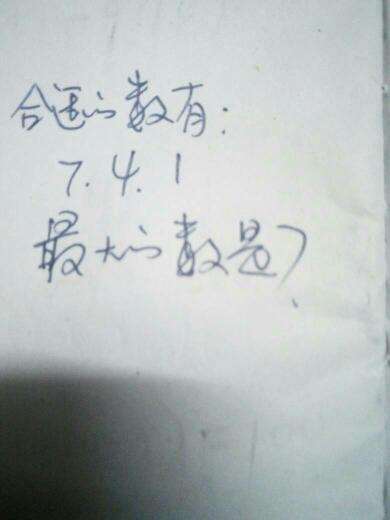 合适的数有:
7.4.1
最大的数是7